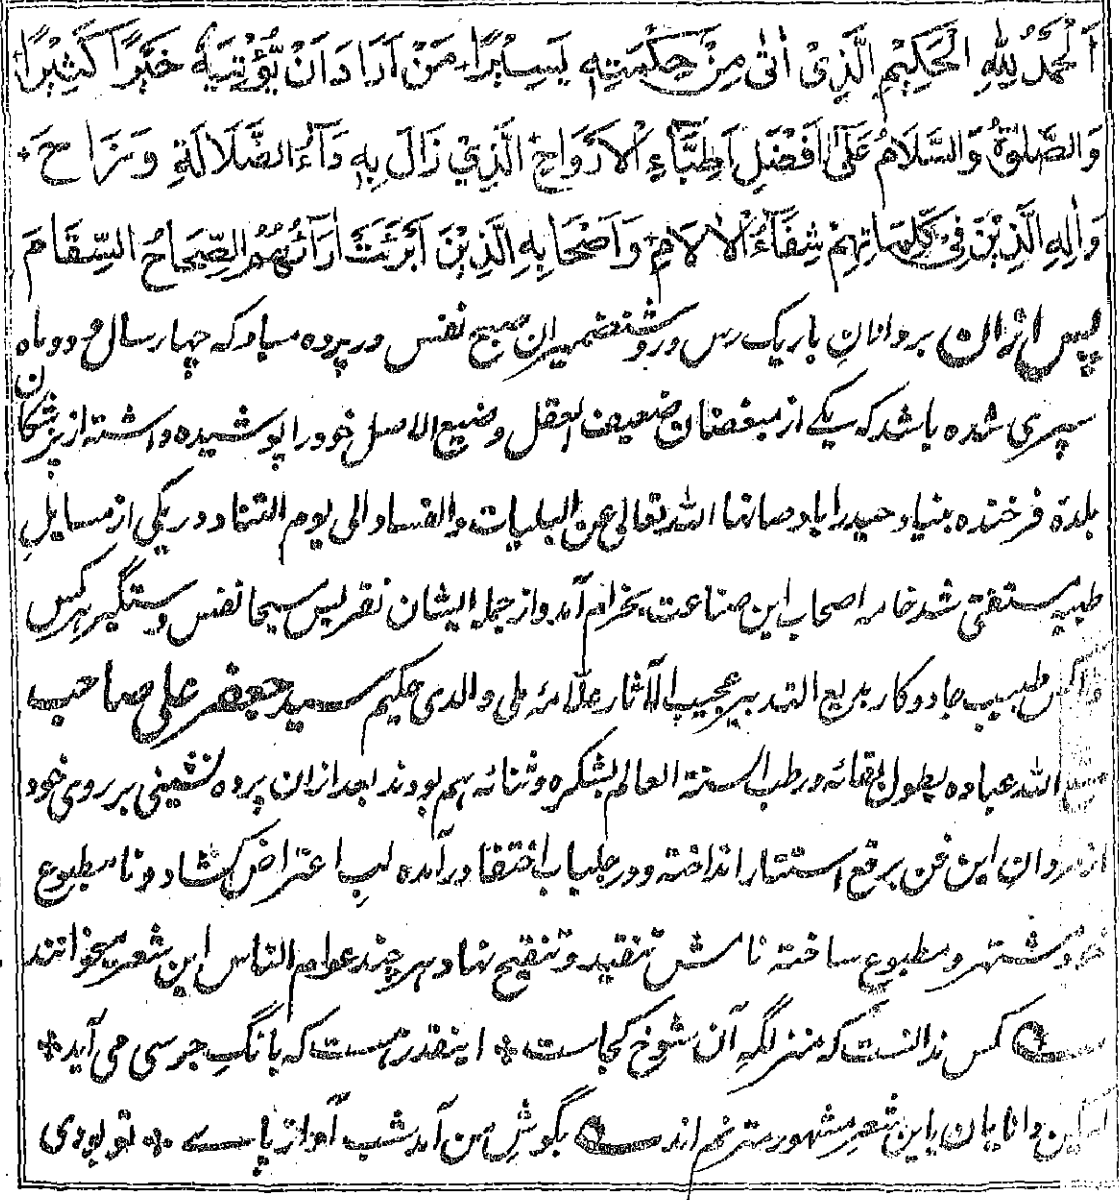 اَلْحَمْدُ لِلّٰهِ الْحَكِيْمِ الَّذِىْ اٰتٰى مِنْ حِكْمَتِهٖ يَسِيْرًا مَنْ اَرَادَ اَنْ يُّؤْتِيَهٗ خَيْرًا كَثِيْرًا
وَالصَّلٰوةُ وَالسَّلَامُ عَلٰى اَفْضَلِ اَطِبَّاءِ الْاَرْوَاحِ الَّذِيْ زَالَ بِهٖ دَاءُ الضَّلَالَةِ وَنَزَاحَ ؞
وَاٰلِهِ الَّذِيْنَ فِيْ كَلِمَاتِهِمْ شِفَاءُ الْاٰلَامِ وَاَصْحَابِهِ الَّذِيْنَ اَبْرَئَتْ اٰرَاؤُهُمُ الصِّحَاحُ السِّقَامَ
پس ازان بر دانانِ باریک رس و روشنضمیران صبح نفس در پرده مباد که چهار سال و دو ماه
سپری شده باشد که یکے از مبغضان ضعیف العقل وضیع الاصل خود را پوشیده داشته از پزشکان
بلدهٔ فرخنده بنیاد حیدراباد صانها الله تعالی عن البلیات والفساد الی یوم التناد در یکی از مسایلِ
طبیه مستفتی شد خامه اصحاب این صناعت بخرام آمد و از جملهٔ ایشان نقریس مسیحا نفس دستگیر هر کس
و ناکس طبیب جادو کار بدیع التدبیر عجیب الآثار علامهٔ ملی والدی حکیم سید جعفر علی صاحب
الله عباده بطول بقائه و رطب السنة العالم بشکره و ثنائه هم بودند بعد ازان پرده نشینی بر روی خود
از مردان این فن برقع استتار انداخته و در جلباب اختفا در آمده لب اعتراض کشاد و نا مطبوع
خود مشتهر و مطبوع ساخته نامش تنقید و تنقیح نهاد هر چند عوام الناس این شعر میخوانند
کس ندانست که منزلگه آن شوخ کجاست ؞ اینقدر هست که بانگِ جرسی می آید ؞
لیکن دانایان باین شعر مشهور مترنم اند بگوشِ من آمد شب آواز پاے ؞ تو بودی